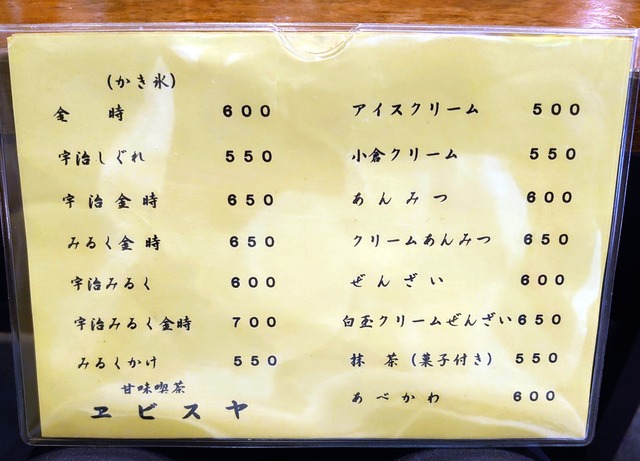 (かき氷)
金時 600
宇治しぐれ 550
宇治金時 650
みるく金時 650
宇治みるく 600
宇治みるく金時 700
みるくかけ 550
甘味喫茶
ヱビスヤ
アイスクリーム 500
小倉クリーム 550
あんみつ 600
クリームあんみつ 650
ぜんざい 600
白玉クリームぜんざい 650
抹茶(菓子付き) 550
あべかわ 600